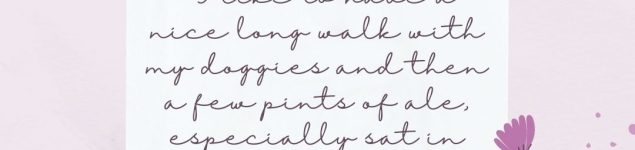 I like to have a
nice long walk with
my doggies and then
a few pints of ale,
especially sat in